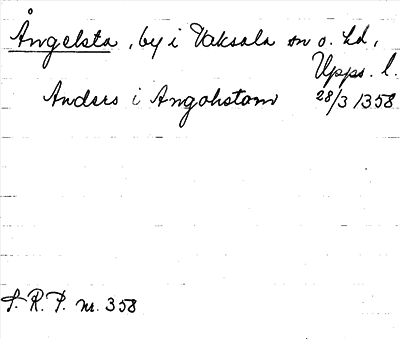 Ångelsta, by i Vaksala sn o. hd,
Upps. l.
Anders i Angohstom 28/3 1358
S. R. P. nr. 358